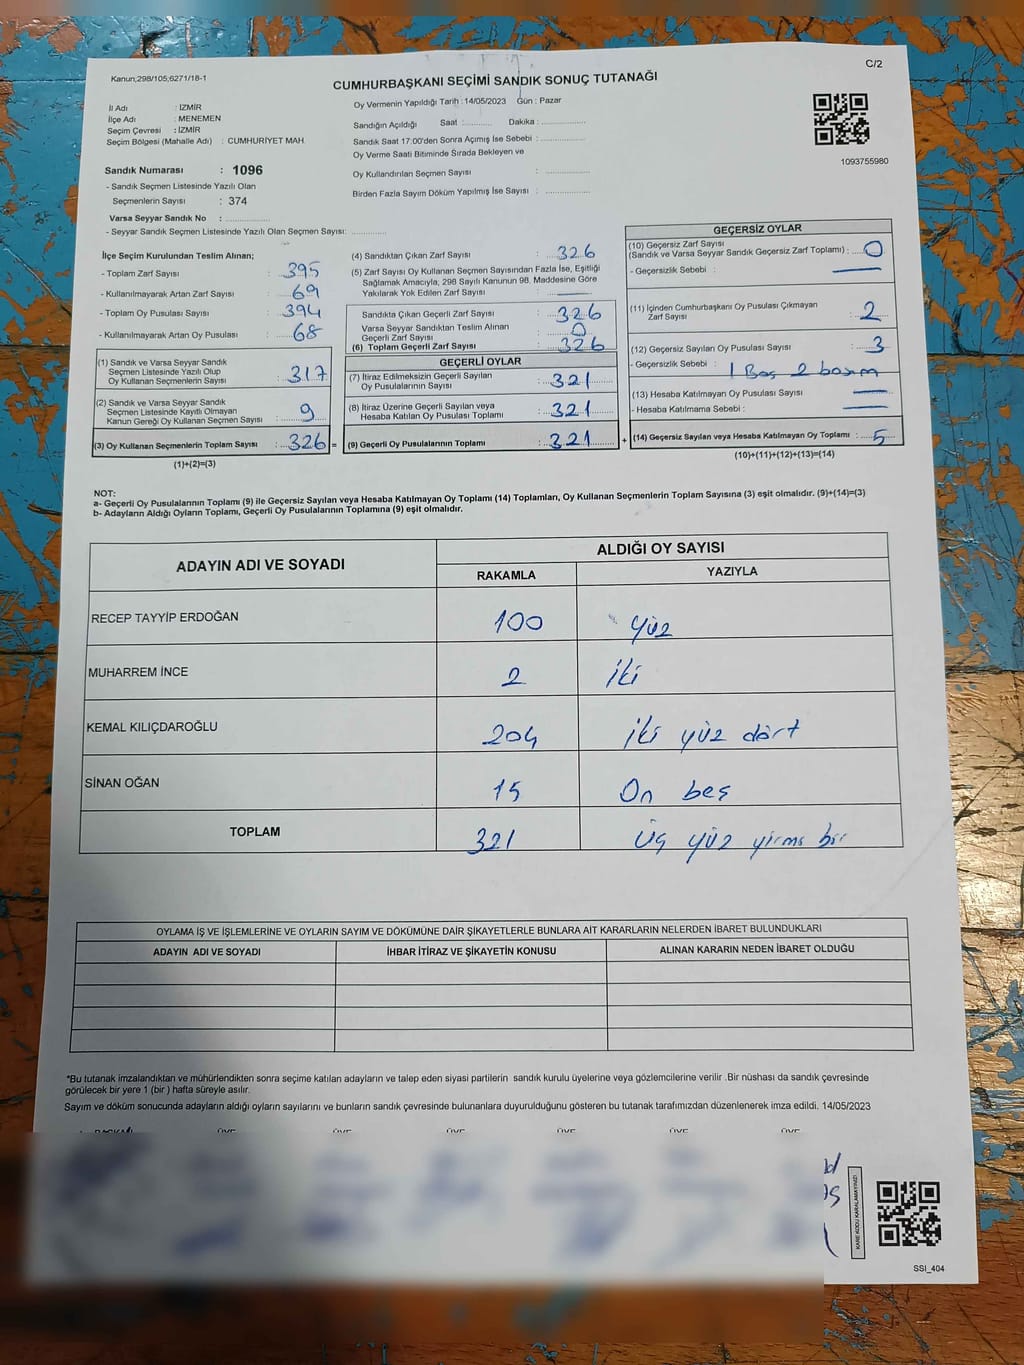 Kanun;298/105;6271/18-1
C/2
CUMHURBAŞKANI SEÇİMİ SANDIK SONUÇ TUTANAĞI
İl Adı : İZMİR
İlçe Adı : MENEMEN
Seçim Çevresi : İZMİR
Seçim Bölgesi (Mahalle Adı) : CUMHURİYET MAH.
Sandık Numarası : 1096
- Sandık Seçmen Listesinde Yazılı Olan
Seçmenlerin Sayısı : 374
Varsa Seyyar Sandık No :
- Seyyar Sandık Seçmen Listesinde Yazılı Olan Seçmen Sayısı:
Oy Vermenin Yapıldığı Tarih :14/05/2023 Gün : Pazar
Sandığın Açıldığı Saat : Dakika :
Sandık Saat 17:00'den Sonra Açımış İse Sebebi :
Oy Verme Saati Bitiminde Sırada Bekleyen ve
Oy Kullandırılan Seçmen Sayısı :
Birden Fazla Sayım Döküm Yapılmış İse Sayısı :
1093755980
İlçe Seçim Kurulundan Teslim Alınan;
- Toplam Zarf Sayısı : 395
- Kullanılmayarak Artan Zarf Sayısı : 69
- Toplam Oy Pusulası Sayısı : 394
- Kullanılmayarak Artan Oy Pusulası : 68
(1) Sandık ve Varsa Seyyar Sandık
Seçmen Listesinde Yazılı Olup
Oy Kullanan Seçmenlerin Sayısı : 317
(2) Sandık ve Varsa Seyyar Sandık
Seçmen Listesinde Kayıtlı Olmayan
Kanun Gereği Oy Kullanan Seçmen Sayısı : 9
(3) Oy Kullanan Seçmenlerin Toplam Sayısı : 326 =
(1)+(2)=(3)
(4) Sandıktan Çıkan Zarf Sayısı : 326
(5) Zarf Sayısı Oy Kullanan Seçmen Sayısından Fazla İse, Eşitliği
Sağlamak Amacıyla, 298 Sayılı Kanunun 98. Maddesine Göre
Yakılarak Yok Edilen Zarf Sayısı :
Sandıkta Çıkan Geçerli Zarf Sayısı : 326
Varsa Seyyar Sandıktan Teslim Alınan
Geçerli Zarf Sayısı : 0
(6) Toplam Geçerli Zarf Sayısı : 326
GEÇERLİ OYLAR
(7) İtiraz Edilmeksizin Geçerli Sayılan
Oy Pusulalarının Sayısı : 321
(8) İtiraz Üzerine Geçerli Sayılan veya
Hesaba Katılan Oy Pusulası Toplamı : 321
(9) Geçerli Oy Pusulalarının Toplamı : 321 +
GEÇERSİZ OYLAR
(10) Geçersiz Zarf Sayısı
(Sandık ve Varsa Seyyar Sandık Geçersiz Zarf Toplamı) : 0
- Geçersizlik Sebebi :
(11) İçinden Cumhurbaşkanı Oy Pusulası Çıkmayan
Zarf Sayısı : 2
(12) Geçersiz Sayılan Oy Pusulası Sayısı : 3
- Geçersizlik Sebebi : 1 Boş 2
(13) Hesaba Katılmayan Oy Pusulası Sayısı :
- Hesaba Katılmama Sebebi :
(14) Geçersiz Sayılan veya Hesaba Katılmayan Oy Toplamı : 5
(10)+(11)+(12)+(13)=(14)
NOT:
a- Geçerli Oy Pusulalarının Toplamı (9) ile Geçersiz Sayılan veya Hesaba Katılmayan Oy Toplamı (14) Toplamları, Oy Kullanan Seçmenlerin Toplam Sayısına (3) eşit olmalıdır. (9)+(14)=(3)
b- Adayların Aldığı Oyların Toplamı, Geçerli Oy Pusulalarının Toplamına (9) eşit olmalıdır.
ADAYIN ADI VE SOYADI
ALDIĞI OY SAYISI
RAKAMLA YAZIYLA
RECEP TAYYİP ERDOĞAN 100 yüz
MUHARREM İNCE 2 iki
KEMAL KILIÇDAROĞLU 204 iki yüz dört
SİNAN OĞAN 15 On beş
TOPLAM 321 üç yüz yirmi bir
OYLAMA İŞ VE İŞLEMLERİNE VE OYLARIN SAYIM VE DÖKÜMÜNE DAİR ŞİKAYETLERLE BUNLARA AİT KARARLARIN NELERDEN İBARET BULUNDUKLARI
ADAYIN ADI VE SOYADI İHBAR İTİRAZ VE ŞİKAYETİN KONUSU ALINAN KARARIN NEDEN İBARET OLDUĞU
*Bu tutanak imzalandıktan ve mühürlendikten sonra seçime katılan adayların ve talep eden siyasi partilerin sandık kurulu üyelerine veya gözlemcilerine verilir .Bir nüshası da sandık çevresinde
görülecek bir yere 1 (bir ) hafta süreyle asılır.
Sayım ve döküm sonucunda adayların aldığı oyların sayılarını ve bunların sandık çevresinde bulunanlara duyurulduğunu gösteren bu tutanak tarafımızdan düzenlenerek imza edildi. 14/05/2023
BAŞKAN ÜYE ÜYE ÜYE ÜYE ÜYE ÜYE
KARE KODU KARALAMAYINIZ!
SSI_404